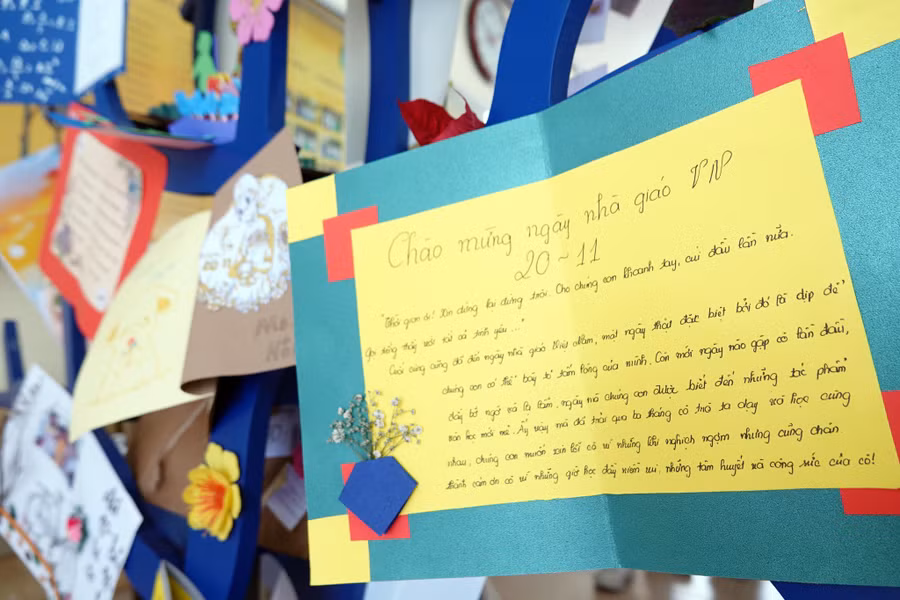 Chào mừng ngày nhà giáo VN
20 - 11
"Thời gian ơi! Xin đừng lại dừng trôi. Cho chúng con khoanh tay, cúi đầu lần nữa.
Gọi tiếng thầy với tất cả tình yêu..."
Cuối cùng cũng đã đến ngày nhà giáo Việt Nam, một ngày thật đặc biệt bởi đó là dịp để
chúng con có thể bày tỏ tấm lòng của mình. Còn mới ngày nào gặp cô lần đầu,
đầy bỡ ngỡ và lạ lẫm, ngày mà chúng con được biết đến những tác phẩm
văn học mới mẻ. Ấy vậy mà đã trải qua ba tháng cô trò ta dạy và học cùng
nhau, chúng con muốn xin lỗi cô vì những lần nghịch ngợm nhưng cũng chân
thành cảm ơn cô vì những giờ học đầy niềm vui, những tâm huyết và công sức của cô!